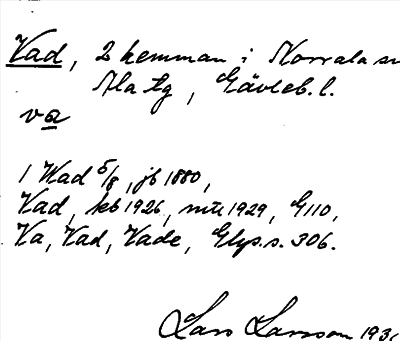 Vad, 2 hemman i Norrala sn
Ala tg, Gävleb. l.
va
1 Wad 5/8, jb 1880,
Vad, kb 1926, mtl 1929, G110,
Va, Vad, Vade, Glys. s. 306.
Lars Larsson 193